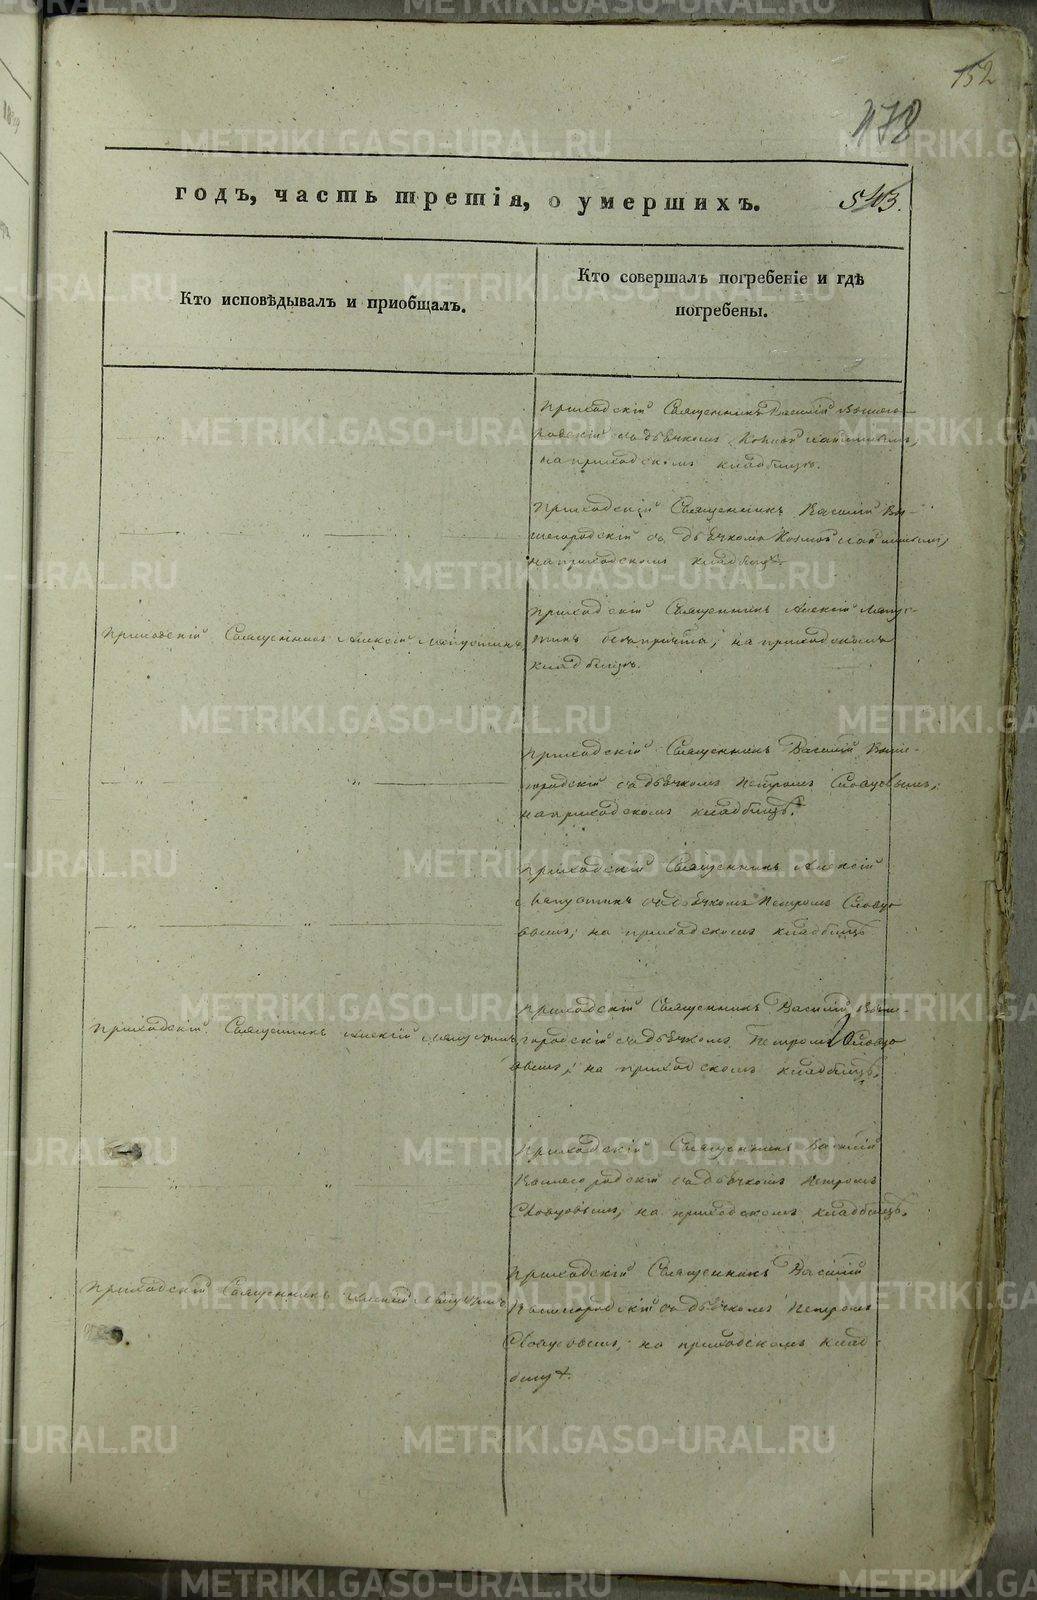 152
478
годъ, часть третія, о умершихъ.
543.
Кто исповѣдывалъ и приобщалъ.
Кто совершалъ погребеніе и гдѣ
погребены.
Приходскій Священникъ Василій Вышего-
родскій съ дьячкомъ Козмой
на приходскомъ кладбищѣ.
Приходскій Священникъ Василій Вы-
шегородскій съ дьячкомъ Козмой
на приходскомъ кладбищѣ
Приходскій Священникъ Алексій Лапустинъ
Приходскій Священникъ Алексій Лапус-
тинъ безъ причта, на приходскомъ
кладбищѣ.
Приходскій Священникъ Василій Выше-
городскій съ дьячкомъ Петромъ Словцовымъ,
на приходскомъ кладбищѣ.
Приходскій Священникъ Алексій
Лапустинъ съ дьячкомъ Петромъ Словцо
вымъ, на приходскомъ кладбищѣ
Приходскій Священникъ Алексій Лапустинъ
Приходскій Священникъ Василій Выше-
городскій съ дьячкомъ Петромъ Словцо
вымъ, на приходскомъ кладбищѣ.
Приходскій Священникъ Василій
Вышегородскій съ дьячкомъ Петромъ
Словцовымъ, на приходскомъ кладбищѣ.
Приходскій Священникъ Алексій Лапустинъ
Приходскій Священникъ Василій
Вышегородскій съ дьячкомъ Петромъ
Словцовымъ, на приходскомъ клад-
бищѣ.
METRIKI.GASO-URAL.RU